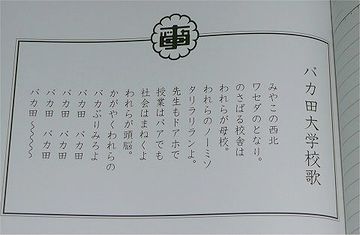 バカ田大学校歌
みやこの西北
ワセダのとなり。
のさばる校舎は
われらが母校。
われらのノーミソ
タリラリランよ。
先生もドアホで
授業はパアでも
社会はまねくよ
われらが頭脳。
かがやくわれらの
バカぶりみろよ
バカ田 バカ田
バカ田 バカ田
バカ田 バカ田
バカ田〜〜〜〜〜